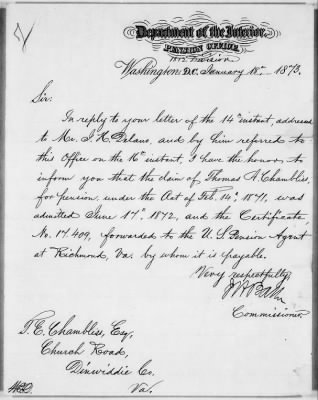 Department of the Interior,
PENSION OFFICE,
1812 Division
Washington D.C. January 18th 1873.
Sir:
In reply to your letter of the 14th instant, addressed
to Mr. J. H. and by him referred to
this Office on the 16th instant, I have the honor, to
inform you that the claim of Thomas A. Chambliss,
for pension, under the Act of Feb. 14th, 1871, was
admitted June 17th, 1872, and the Certificate
No. 17.409, forwarded to the U.S. Pension Agent
at Richmond, Va. by whom it is payable.
Very respectfully,
J H Baker
Commissioner.
T. E. Chambliss, Esq,
Church Road,
Dinwiddie Co.
Va.